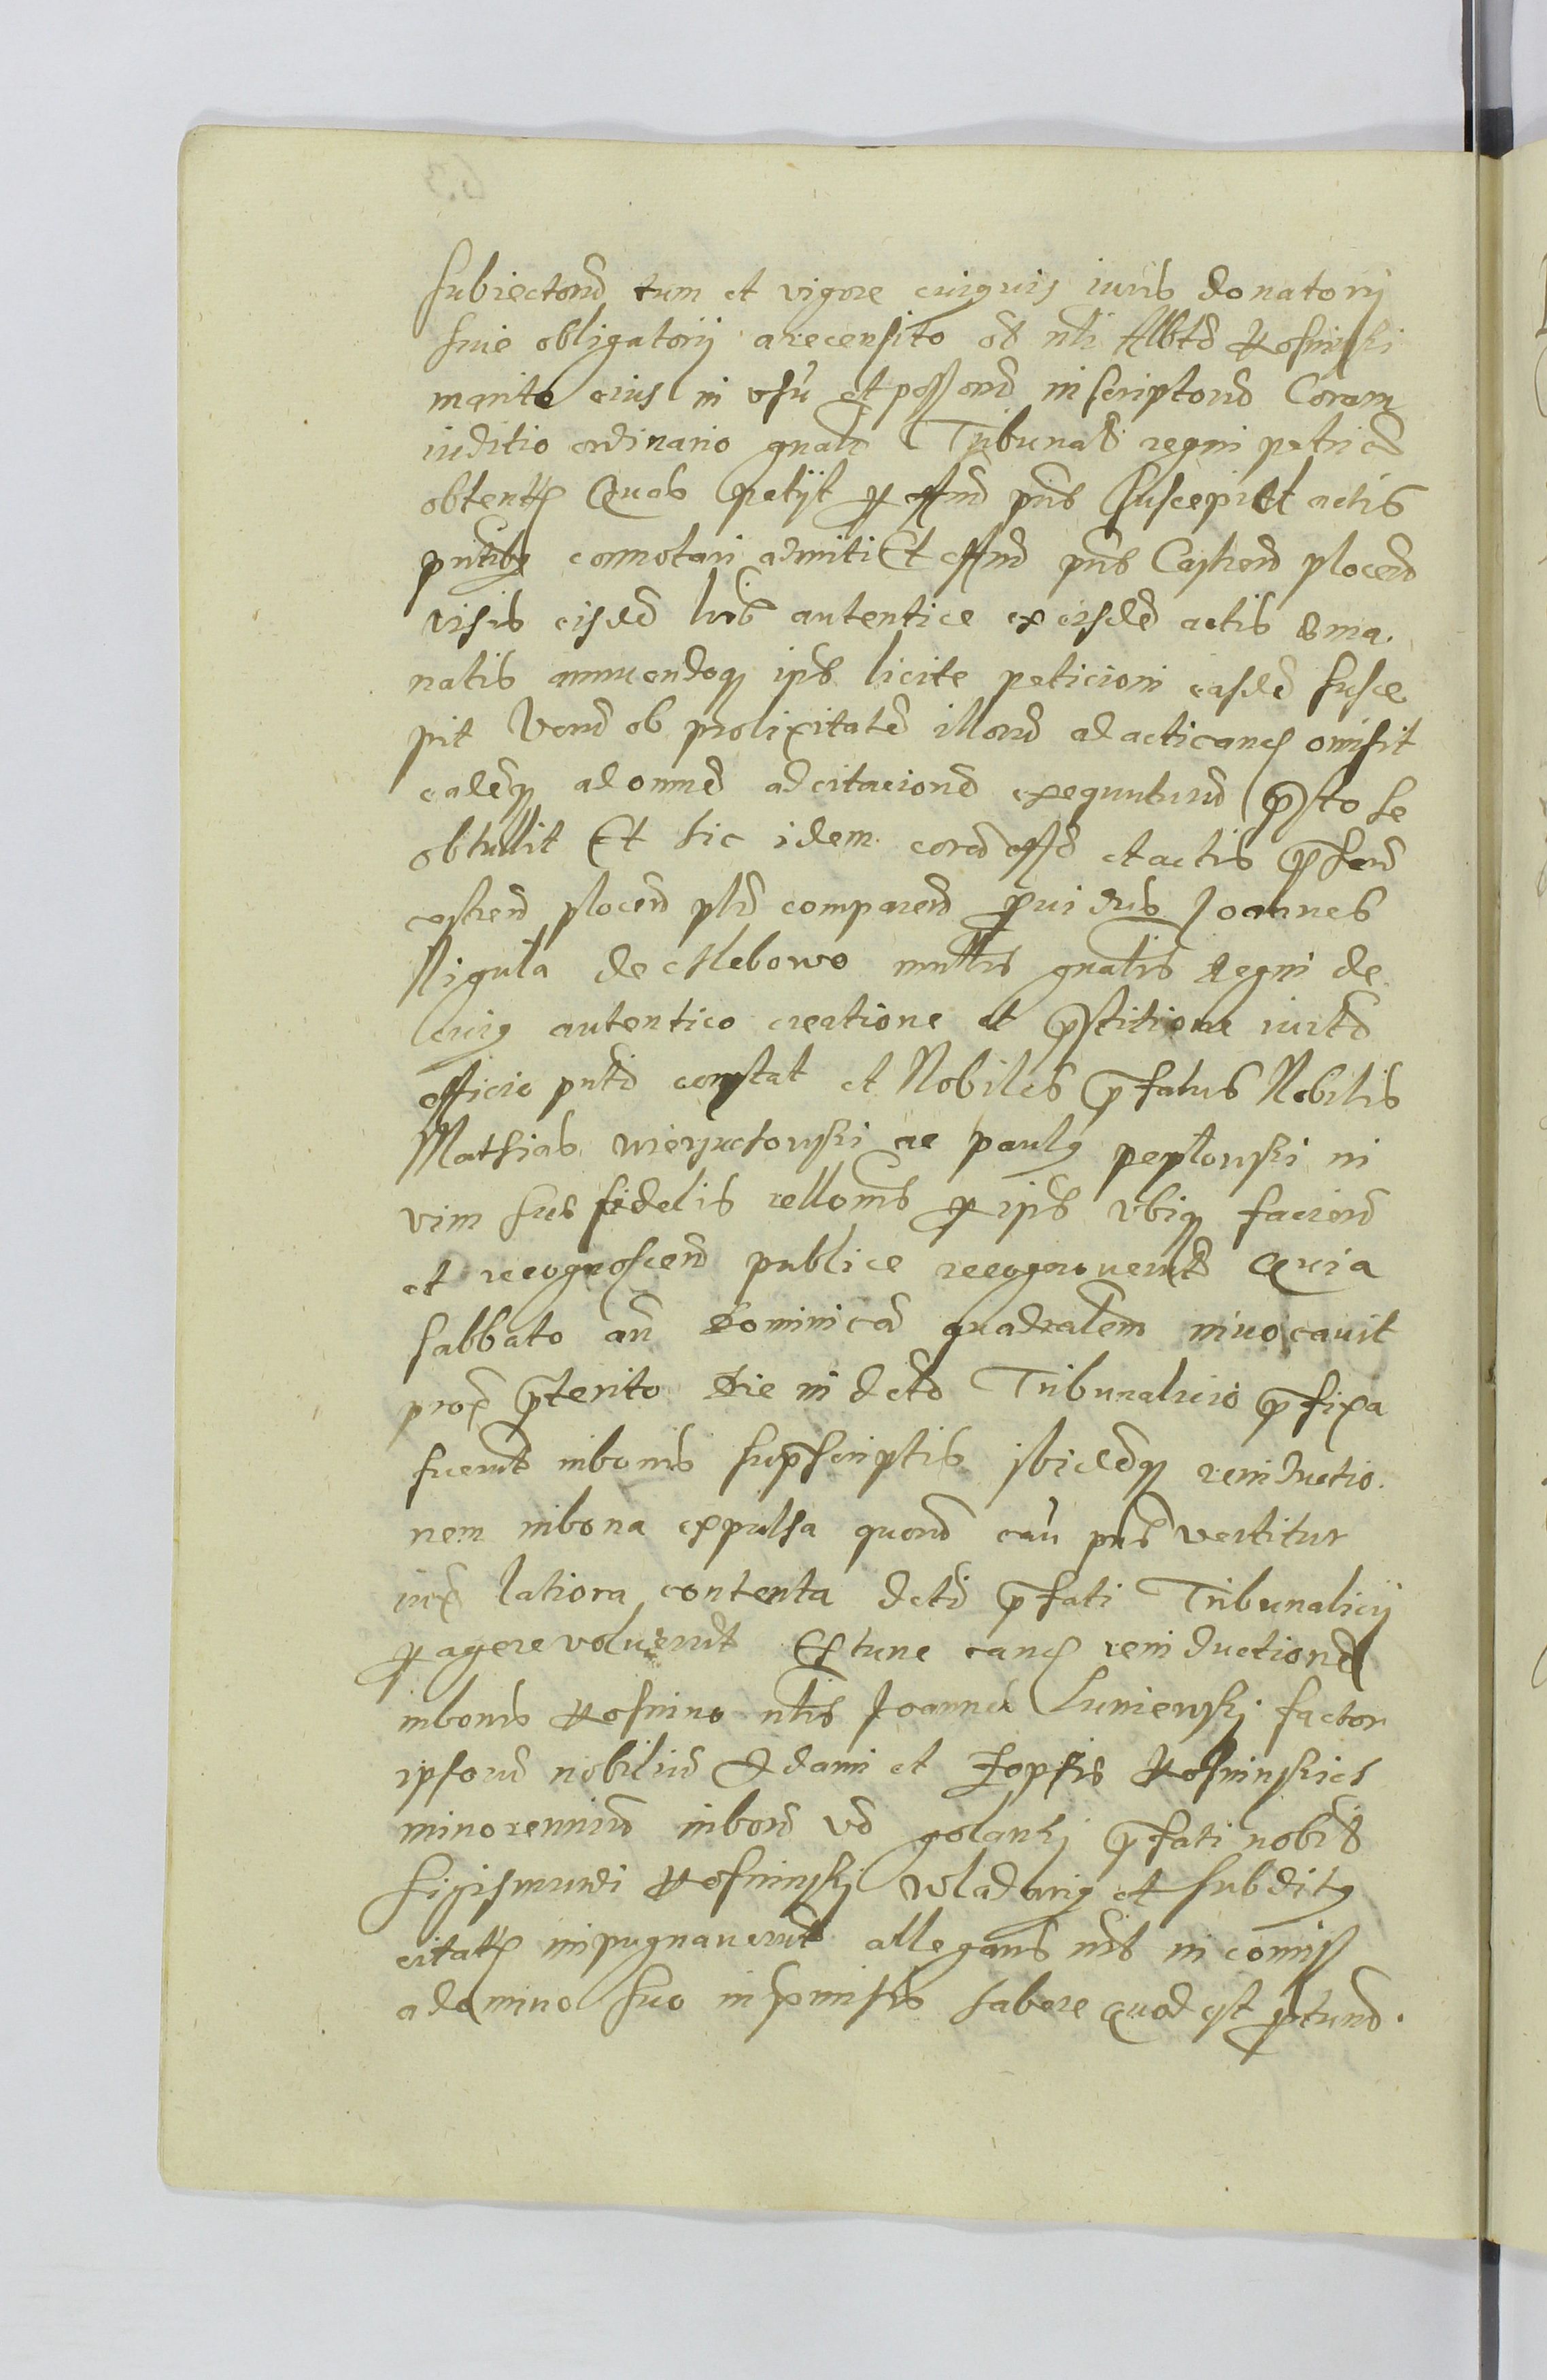 subiectorum tum et vigore cuiusvis iuris donatorij
siue obligatorij a recensito ol. nli Albto Kosminski
marito eius in vsu et possone inscriptorum Coram
iuditio ordinario gnali Tribunali regni petricoui
obtentum Quas petijt per offm pns suscepi et actis
pntibus connotari admiti Et offm pns Castren plocen
visis eisdem lris autentice ex eisdem actis ema
natis annuendoque ips licite peticioni easdem susce
pit Verum ob prolixitatem illorum ad acticandum omisit
eademque ad omnem adcitacionem exequuturum presto se
obtullit Et hic idem coram offo et actis presen
castren plocen plr comparen prouidus Joannes
Nigula de Chlebowo mnstris gnalis Regni de
cuius autentico creatione et prestitione iurtd
officio pntd constat et Nobiles prefatus Nobilis
Mathias ac paulus peplowski in
vim sue fidelis rellonis per ips vbique faciend
et recognoscend publice recognouerunt Quia
sabbato an Dominicam quadralem inuocauit
prox preterito Die in dcto Tribunalicio prefixa
fuerunt in bonis suprascriptis ibidemque reinductio
nem in bona expulsa quorum cau pns vertitur
iux latiora contenta dcti prefati Tribunalicij
peragere voluerunt Extunc eandem reinductionem
in bonis Kosmino nlis Joannes Luniewski factor
ipsorum nobilium Adami et Zophie Kosminskich
minorennium in bon vo golanki prefati nobilis
Sigismundi Kosminski Wlodarius et subditus
citatum inpugnauerunt allegans nris in comiss
a domino suo in premissis habere quod est protunc.